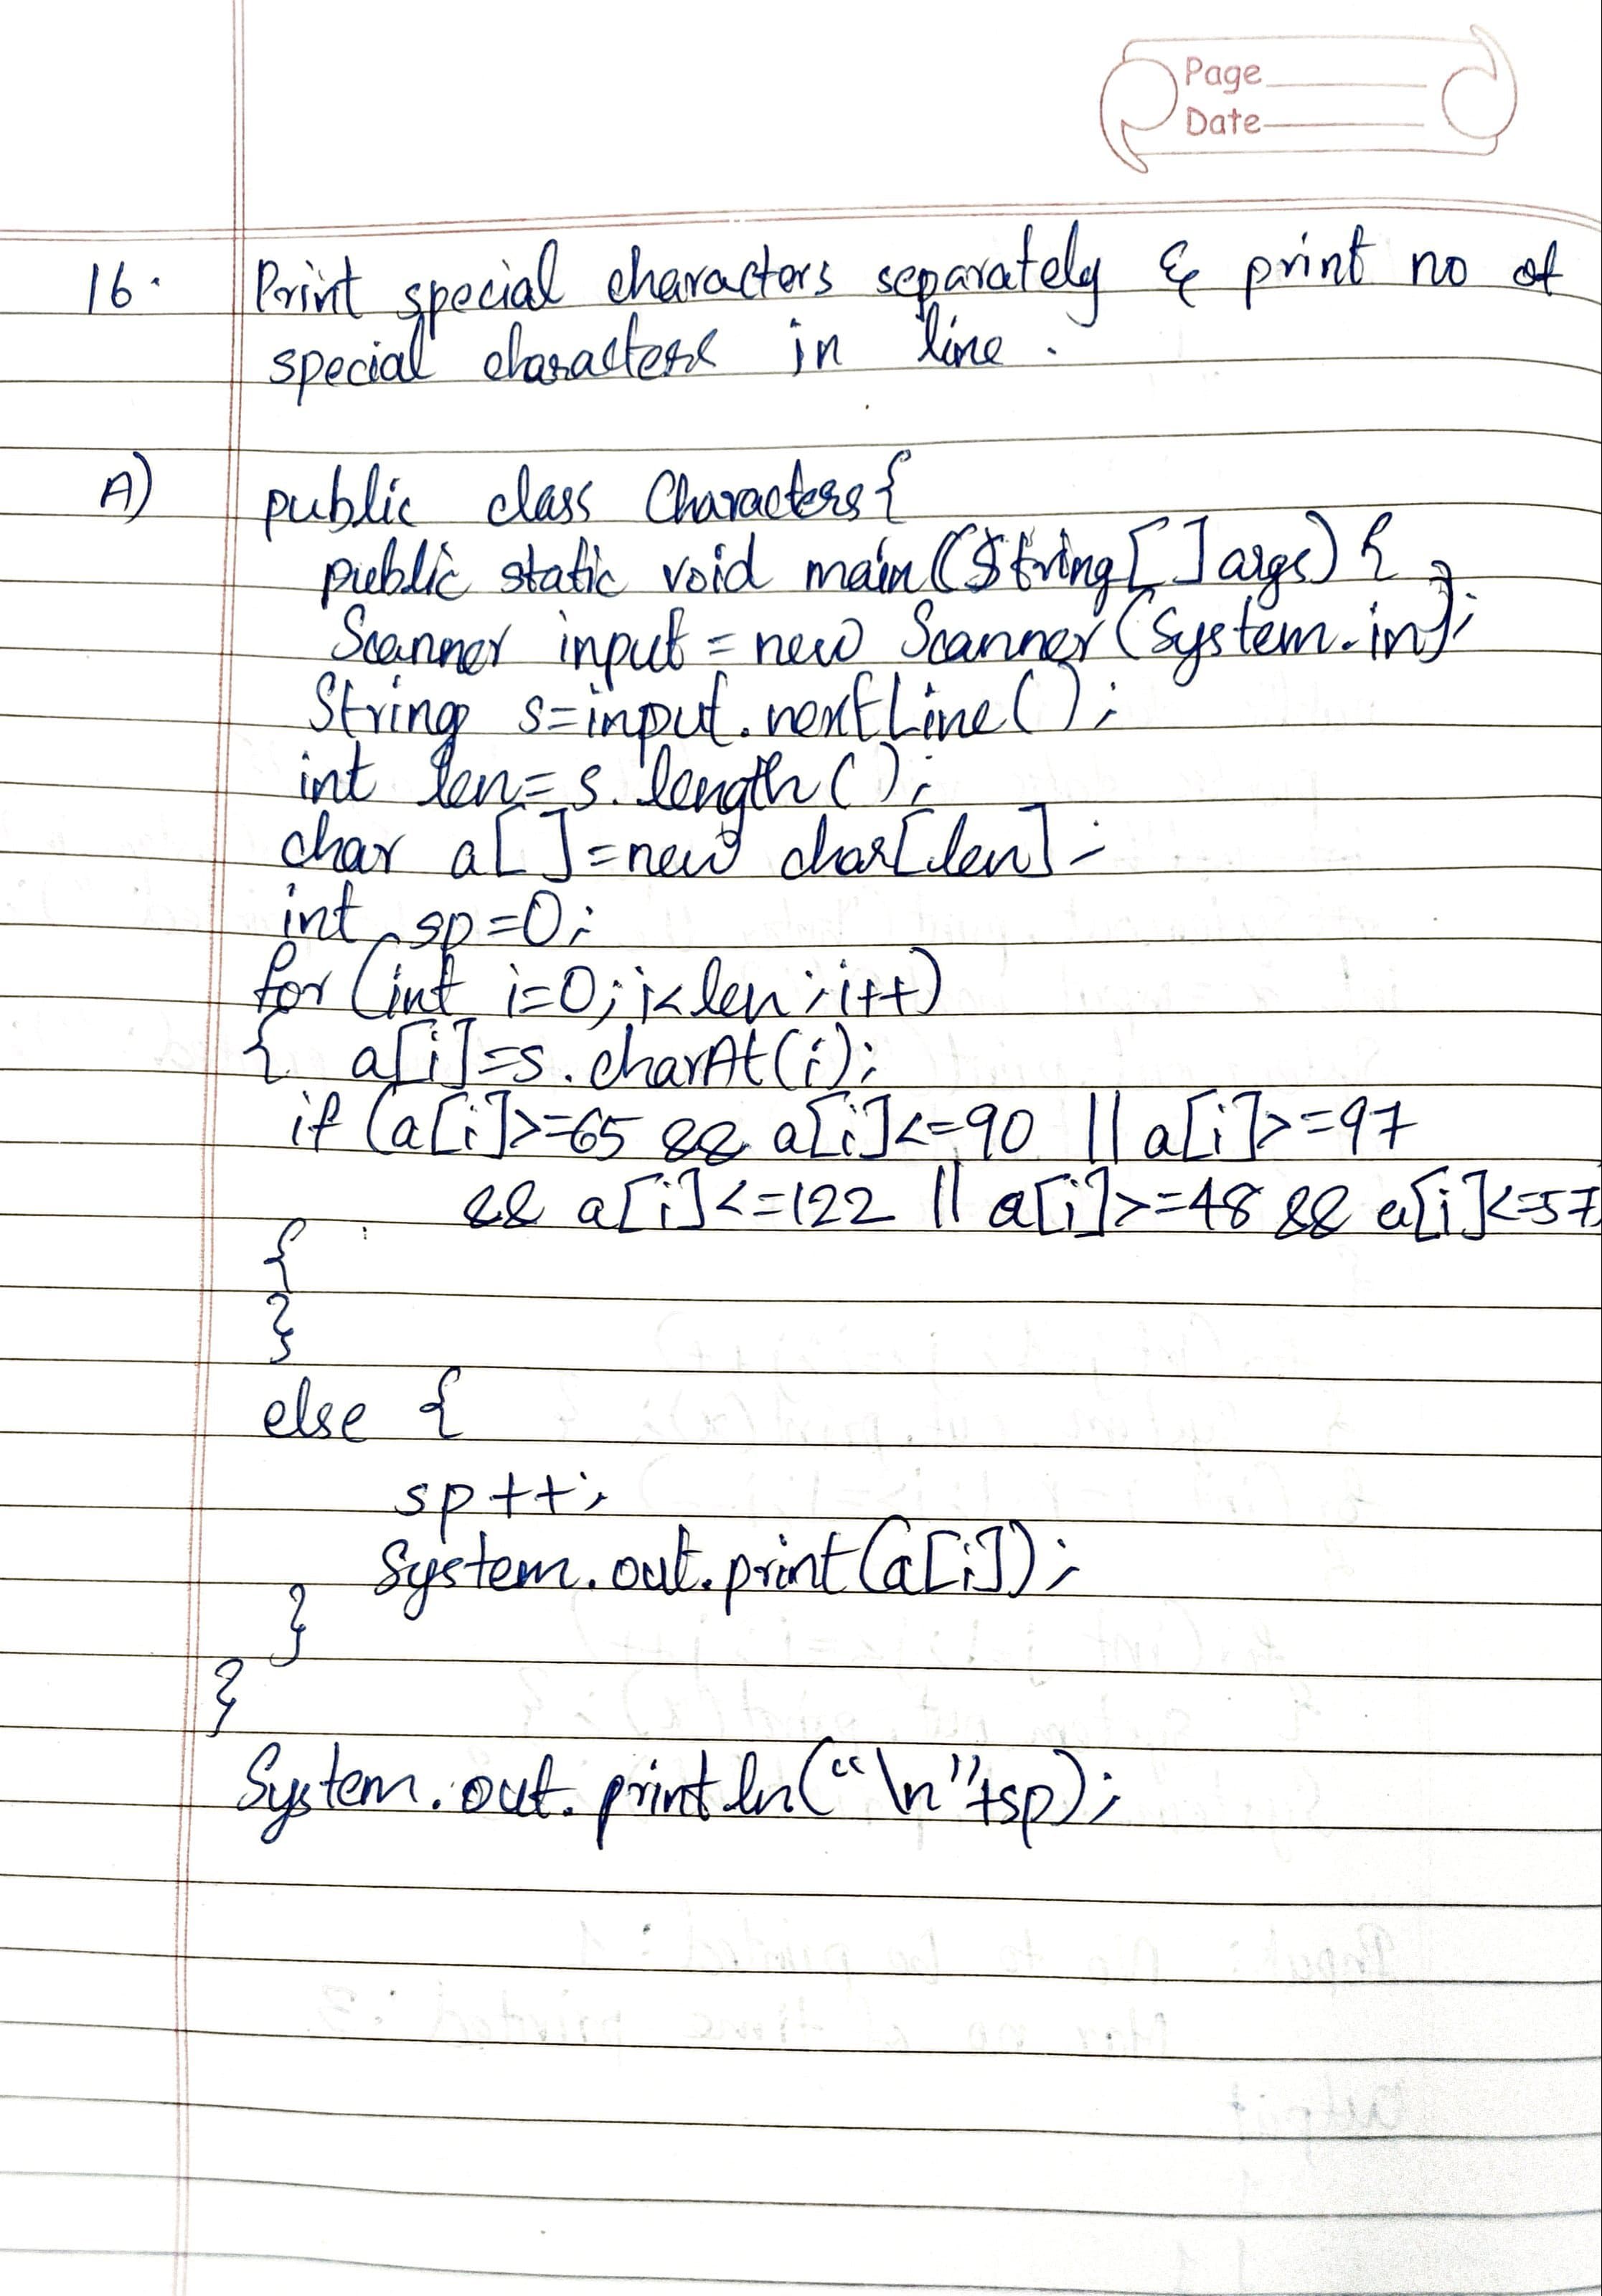 Page
Date
16. Print special characters separately & print no of
special characters in line.
A) public class Characters{
public static void main(String[]args){
Scanner input=new Scanner(System.in);
String s=input.nextLine();
int len=s.length();
char a[]=new char[len];
int sp=0;
for(int i=0;i<len;i++)
{ a[i]=s.charAt(i);
if(a[i]>=65 && a[i]<=90 || a[i]>=97
&& a[i]<=122 || a[i]>=48 && a[i]<=57)
{
}
else {
sp++;
System.out.print(a[i]);
}
}
System.out.println("\n"+sp);